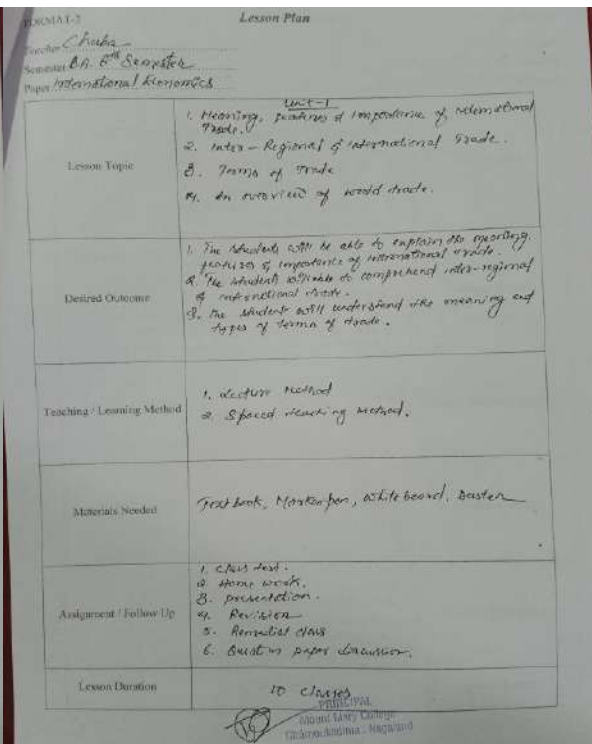 FORMAT-2
Lesson Plan
Teacher Chuba
Semester BA. 6th Semester
Paper International Economics
Unit-1
Lesson Topic
1. Meaning, features & importance of international
Trade.
2. Inter-Regional & international Trade.
3. Terms of Trade
4. An overview of world trade.
Desired Outcome
1. The students will be able to explain the meaning,
features & importance of international trade.
2. The students will able to comprehend inter-regional
& international trade.
3. The student will understand the meaning and
types of terms of trade.
Teaching / Learning Method
1. Lecture Method
2. Spaced teaching method.
Materials Needed
Text book, Marker pen, white board, Duster
Assignment / Follow Up
1. Class test.
2. Home work.
3. presentation.
4. Revision
5. Remedial class
6. Question paper discussion.
Lesson Duration
10 Classes
PRINCIPAL
Mount Mary College
Chumoukedima : Nagaland